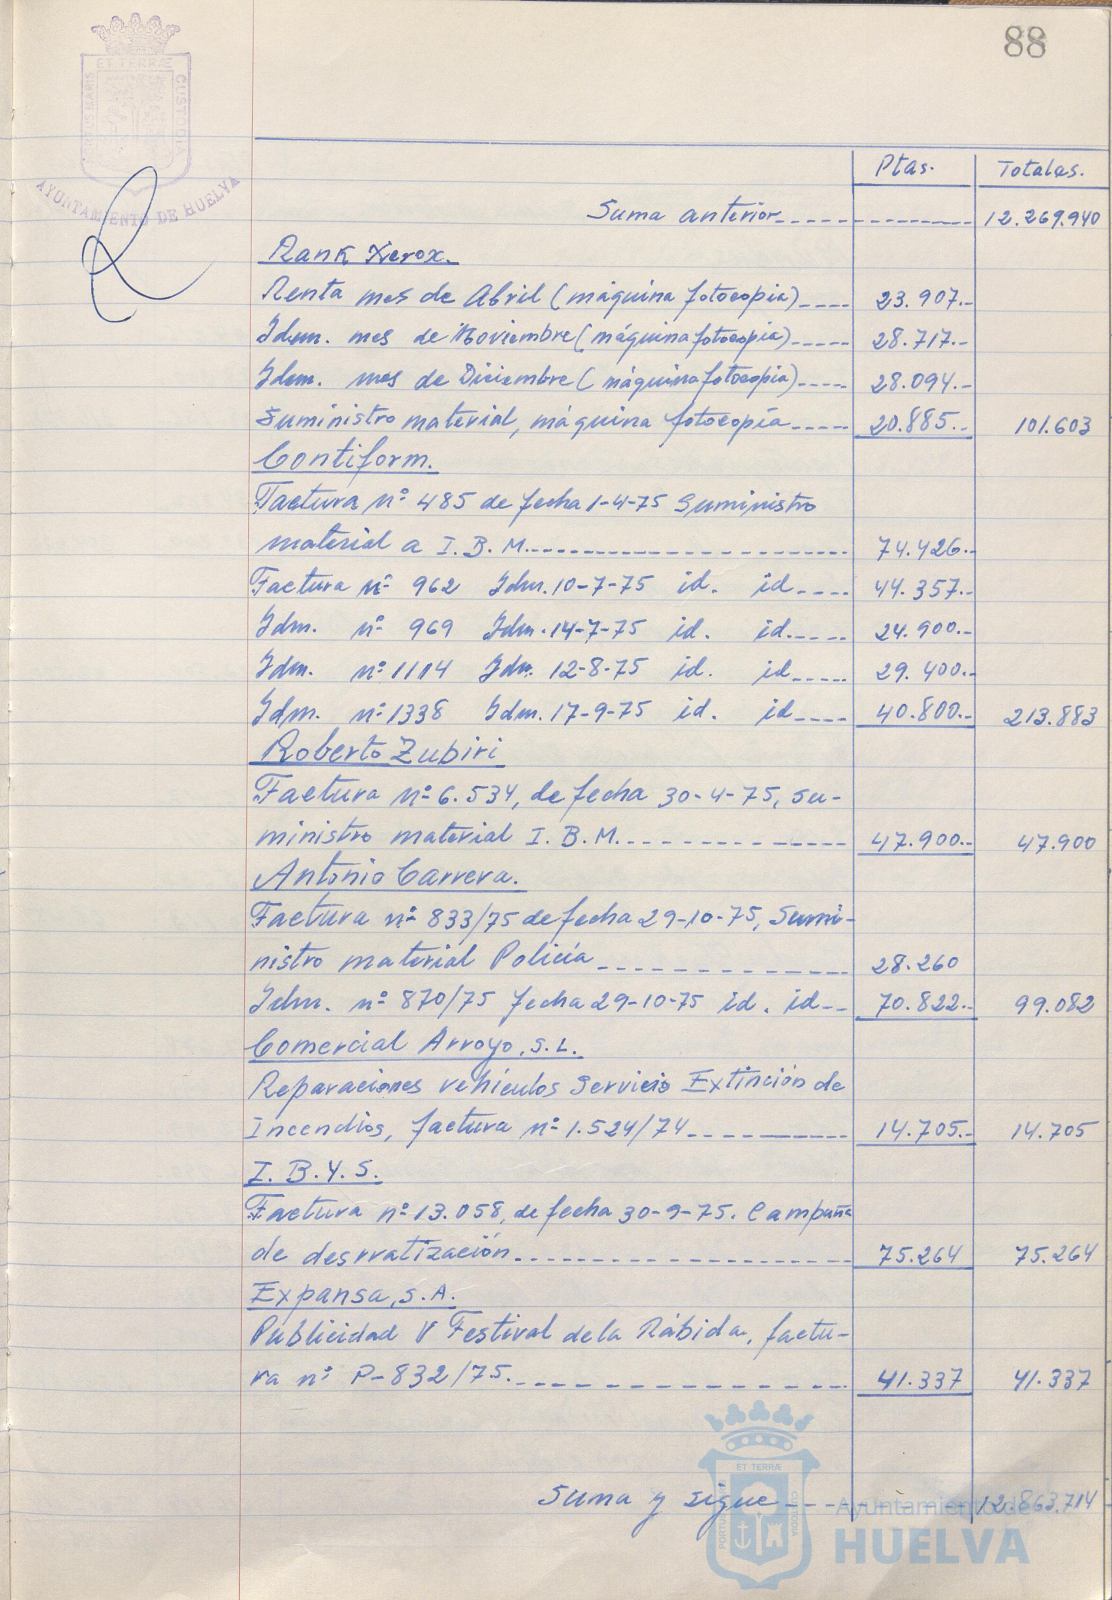 88
ET TERRÆ
PORTUS MARIS
CUSTODIA
AYUNTAMIENTO DE HUELVA
Ptas. Totales.
Suma anterior 12.269.940
Rank Xerox.
Renta mes de Abril (máquina fotocopia) 23.907.-
Idem. mes de Noviembre (máquina fotocopia) 28.717.-
Idem. mes de Diciembre (máquina fotocopia) 28.094.-
Suministro material, máquina fotocopia 20.885.- 101.603
Contiform.
Factura nº 485 de fecha 1-4-75 Suministro
material a I.B.M. 74.426.-
Factura nº 962 Idm. 10-7-75 id. id. 44.357.-
Idm. nº 969 Idm. 14-7-75 id. id. 24.900.-
Idm. nº 1114 Idm. 12-8-75 id. id 29.400.-
Idm. nº 1338 Idm. 17-9-75 id. id 40.800.- 213.883
Roberto Zubiri
Factura nº 6.534, de fecha 30-4-75, su-
ministro material I.B.M. 47.900.- 47.900
Antonio Carrera.
Factura nº 833/75 de fecha 29-10-75, Sumi-
nistro material Policía 28.260
Idm. nº 870/75 fecha 29-10-75 id. id 70.822.- 99.082
Comercial Arroyo, S.L.
Reparaciones vehículos Servicio Extinción de
Incendios, factura nº 1.524/74 14.705.- 14.705
I.B.Y.S.
Factura nº 13.058, de fecha 30-9-75. Campaña
de desrratización 75.264 75.264
Expansa, S.A.
Publicidad V Festival de la Rábida, factu-
ra nº P-832/75. 41.337 41.337
Suma y sigue 12.863.714
ET TERRÆ
PORTUS MARIS
CUSTODIA
Ayuntamiento de
HUELVA